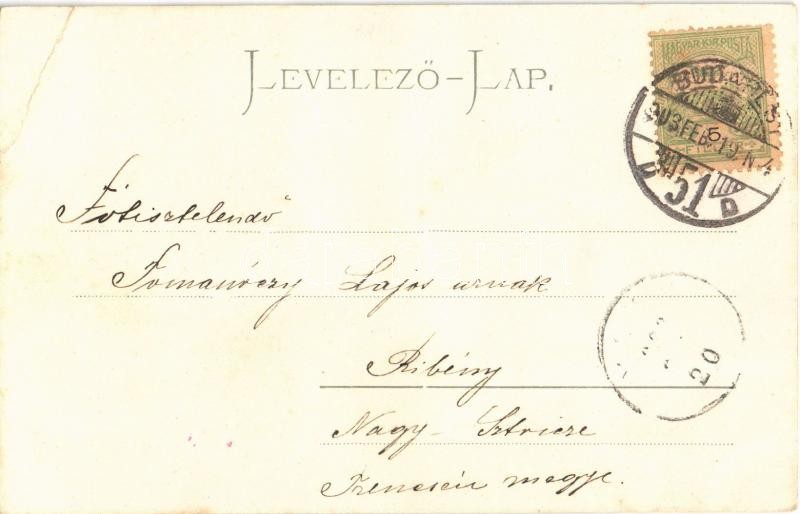 LEVELEZŐ-LAP.
MAGYAR KIR. POSTA
BUDAPEST
903 FEB. 19 N 4
5
D 51 D
Főtisztelendő
Lajos urnak
Nagy-Sztricze
Trencsén megye.
20